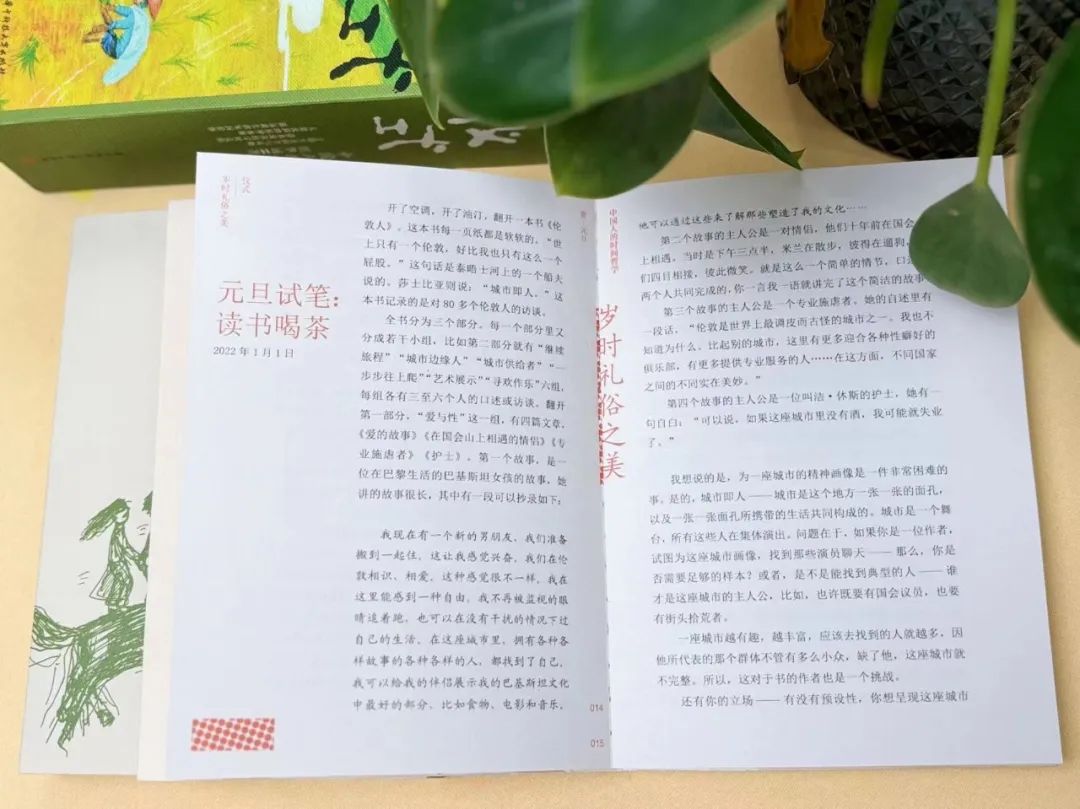 仪式
岁时礼俗之美
元旦试笔：
读书喝茶
2022 年 1 月 1 日
开了空调，开了油汀，翻开一本书《伦
敦人》。这本书每一页纸都是软软的，“世
上只有一个伦敦，好比我也只有这么一个
屁股。”这句话是泰晤士河上的一个船夫
说的。莎士比亚则说：“城市即人。”这
本书记录的是对 80 多个伦敦人的访谈。
全书分为三个部分。每一个部分里又
分成若干小组，比如第二部分就有“继续
旅程”“城市边缘人”“城市供给者”“一
步步往上爬”“艺术展示”“寻欢作乐”六组，
每组各有三至六个人的口述或访谈。翻开
第一部分，“爱与性”这一组，有四篇文章，
《爱的故事》《在国会山上相遇的情侣》《专
业施虐者》《护士》。第一个故事，是一
位在巴黎生活的巴基斯坦女孩的故事，她
讲的故事很长，其中有一段可以抄录如下：
我现在有一个新的男朋友，我们准备
搬到一起住，这让我感觉兴奋，我们在伦
敦相识、相爱，这种感觉很不一样，我在
这里能感到一种自由，我不再被监视的眼
睛追着跑，也可以在没有干扰的情况下过
自己的生活。在这座城市里，拥有各种各
样故事的各种各样的人，都找到了自己，
我可以给我的伴侣展示我的巴基斯坦文化
中最好的部分，比如食物、电影和音乐，
014
015
中国人的时间哲学
岁时礼俗之美
他可以通过这些来了解那些塑造了我的文化……
第二个故事的主人公是一对情侣，他们十年前在国会
上相遇，当时是下午三点半，米兰在散步，彼得在遛狗，
们四目相接，彼此微笑。就是这么一个简单的情节，口述
两个人共同完成的，你一言我一语就讲完了这个简洁的故事
第三个故事的主人公是一个专业施虐者。她的自述里有
一段话，“伦敦是世界上最调皮而古怪的城市之一。我也不
知道为什么。比起别的城市，这里有更多迎合各种性癖好的
俱乐部，有更多提供专业服务的人……在这方面，不同国家
之间的不同实在美妙。”
第四个故事的主人公是一位叫洁·休斯的护士，她有一
句自白：“可以说，如果这座城市里没有酒，我可能就失业
了。”
我想说的是，为一座城市的精神画像是一件非常困难的
事。是的，城市即人——城市是这个地方一张一张的面孔，
以及一张一张面孔所携带的生活共同构成的。城市是一个舞
台，所有这些人在集体演出。问题在于，如果你是一位作者，
试图为这座城市画像，找到那些演员聊天——那么，你是
否需要足够的样本？或者，是不是能找到典型的人——谁
才是这座城市的主人公，比如，也许既要有国会议员，也要
有街头拾荒者。
一座城市越有趣，越丰富，应该去找到的人就越多，因
他所代表的那个群体不管有多么小众，缺了他，这座城市就
不完整。所以，这对于书的作者也是一个挑战。
还有你的立场——有没有预设性，你想呈现这座城市